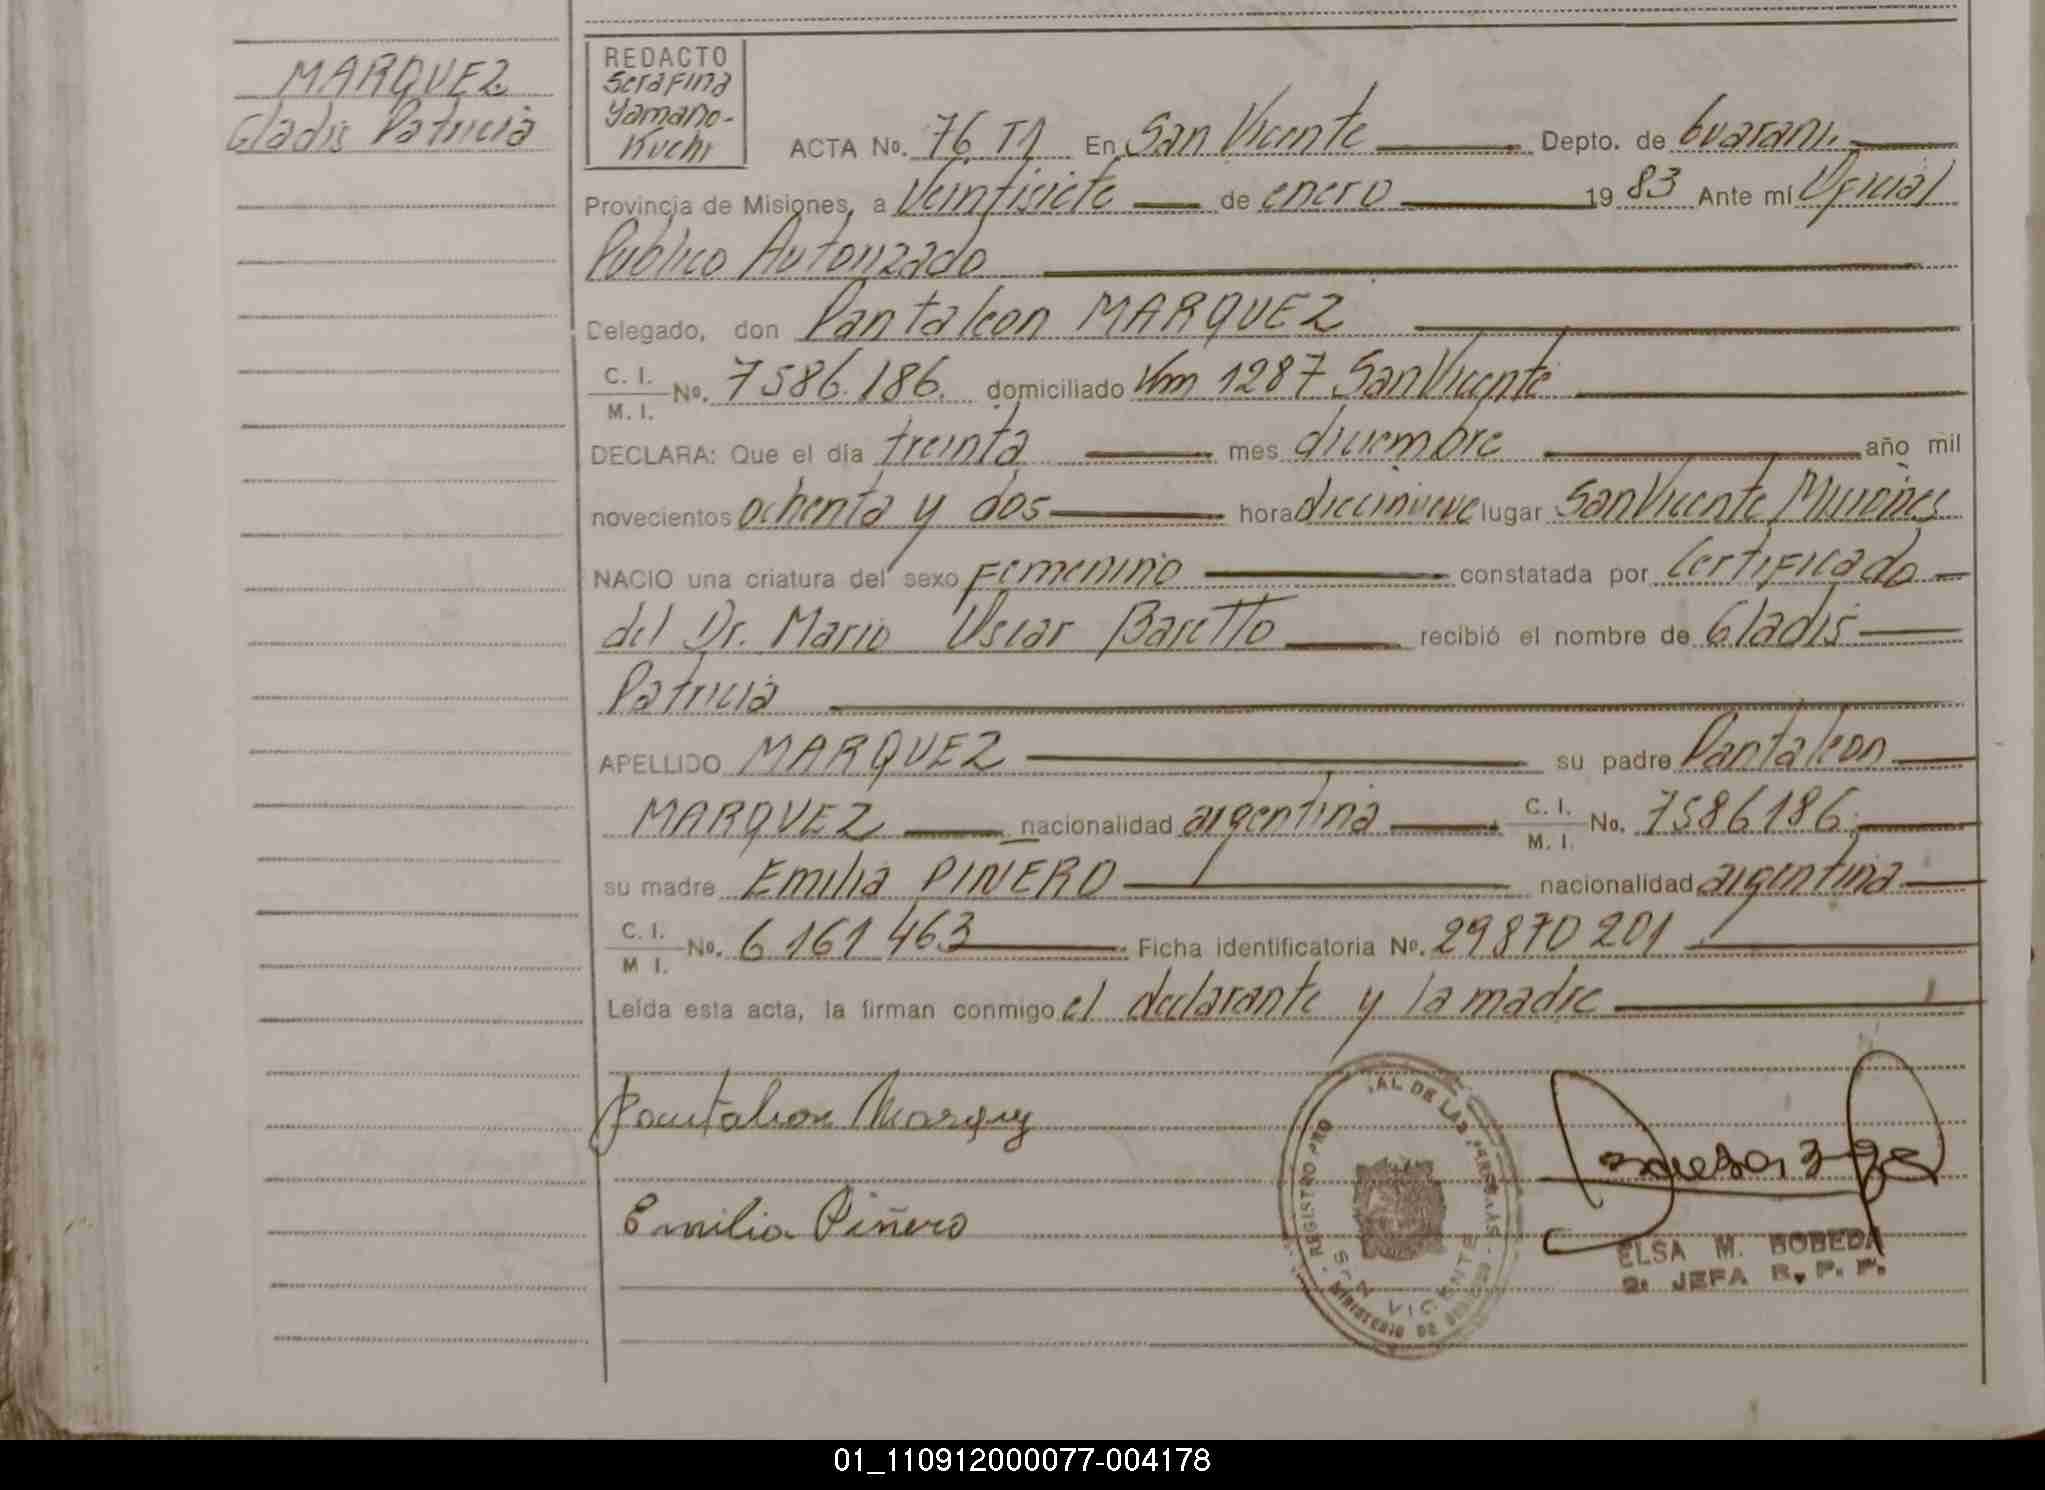 MARQUEZ
Gladis Patricia
REDACTO
Serafina
Yamano-
Kuchi
ACTA No. 76 T1 En San Vicente Depto. de Guaraní
Provincia de Misiones, a Veintisiete de enero 19 83 Ante mí Oficial
Publico Autorizado
Delegado, don Pantaleon MARQUEZ
C. I.
M. I. No. 7586.186. domiciliado Km 1287 San Vicente
DECLARA: Que el día treinta mes diciembre año mil
novecientos ochenta y dos hora diecinueve lugar San Vicente Misiones
NACIO una criatura del sexo Femenino constatada por Certificado
del Dr. Mario Oscar Baretto recibió el nombre de Gladis
Patricia
APELLIDO MARQUEZ su padre Pantaleon
MARQUEZ nacionalidad argentina C. I. M. I. No. 7586186
su madre Emilia PINERO nacionalidad argentina
C. I.
M I. No. 6 161 463 Ficha identificatoria No. 29870201
Leída esta acta, la firman conmigo el declarante y la madre
Pantaleon Marquez
Emilia Piñero
REGISTRO PRO AL DE LAS PERSONAS
SAN VICENTE
MINISTERIO DE
ELSA M. BOBEDA
2: JEFA R. P. P.
01_110912000077-004178